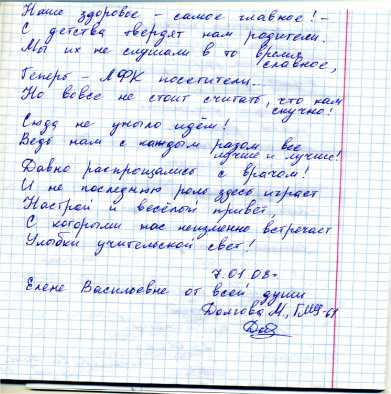 Наше здоровое - самое главное! -
С детства твердят нам родители.
Мы их не слушали в то время
славное,
Теперь - ЛФК посетители...
Но вовсе не стоит считать, что нам
скучно!
Сюда не уныло идём!
Ведь нам с каждым разом все
лучше и лучше!
Давно распрощались с врачом!
И не последнюю роль здесь играет
Настрой и весёлый привет,
С которыми нас неизменно встречает
Улыбки учительской свет!
7.01.08г.
Елене Васильевне от всей души
Долгова М.,